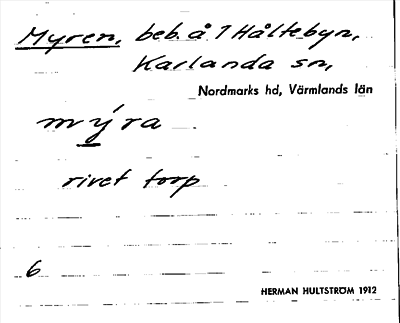 Myren, beb. å 1 Håltebyn,
Karlanda sn,
Nordmarks hd, Värmlands län
mýra
rivet torp
6
HERMAN HULTSTRÖM 1912